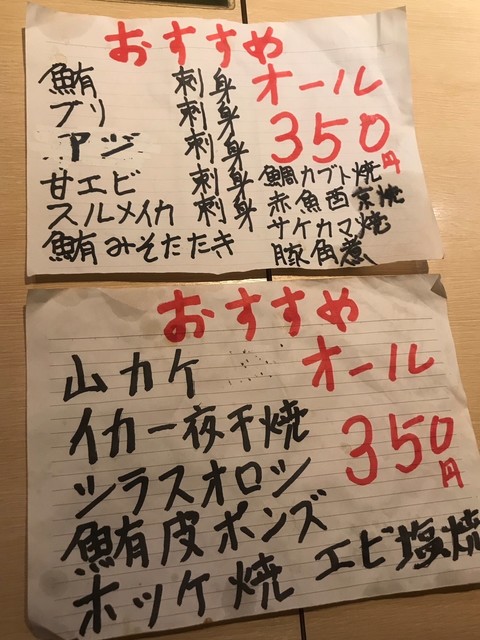 おすすめ
鮪 刺身
ブリ 刺身
アジ 刺身
甘エビ 刺身
スルメイカ 刺身
鮪みそたたき
オール
350円
鯛カブト焼
赤魚西京焼
サケカマ焼
豚角煮
おすすめ
オール
350円
山カケ
イカ一夜干焼
シラスオロシ
鮪皮ポンズ
ホッケ焼 エビ塩焼